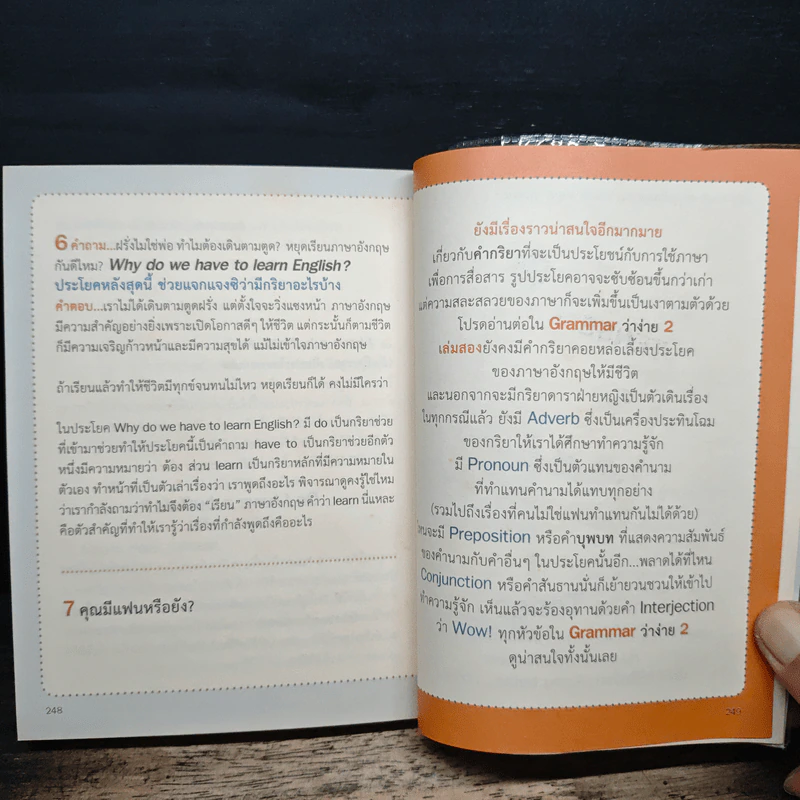 6 คำถาม...ฝรั่งไม่ใช่พ่อ ทำไมต้องเดินตามตูด? หยุดเรียนภาษาอังกฤษ
กันดีไหม? Why do we have to learn English?
ประโยคหลังสุดนี้ ช่วยแจกแจงซิว่ามีกริยาอะไรบ้าง
คำตอบ...เราไม่ได้เดินตามตูดฝรั่ง แต่ตั้งใจจะวิ่งแซงหน้า ภาษาอังกฤษ
มีความสำคัญอย่างยิ่งเพราะเปิดโอกาสดีๆ ให้ชีวิต แต่กระนั้นก็ตามชีวิต
ก็มีความเจริญก้าวหน้าและมีความสุขได้ แม้ไม่เข้าใจภาษาอังกฤษ
ถ้าเรียนแล้วทำให้ชีวิตมีทุกข์จนทนไม่ไหว หยุดเรียนก็ได้ คงไม่มีใครว่า
ในประโยค Why do we have to learn English? มี do เป็นกริยาช่วย
ที่เข้ามาช่วยทำให้ประโยคนี้เป็นคำถาม have to เป็นกริยาช่วยอีกตัว
หนึ่งมีความหมายว่า ต้อง ส่วน learn เป็นกริยาหลักที่มีความหมายใน
ตัวเอง ทำหน้าที่เป็นตัวเล่าเรื่องว่า เราพูดถึงอะไร พิจารณาดูคงรู้ใช่ไหม
ว่าเรากำลังถามว่าทำไมจึงต้อง “เรียน” ภาษาอังกฤษ คำว่า learn นี่แหละ
คือตัวสำคัญที่ทำให้เรารู้ว่าเรื่องที่กำลังพูดถึงคืออะไร
7 คุณมีแฟนหรือยัง?
248
ยังมีเรื่องราวน่าสนใจอีกมากมาย
เกี่ยวกับคำกริยาที่จะเป็นประโยชน์กับการใช้ภาษา
เพื่อการสื่อสาร รูปประโยคอาจจะซับซ้อนขึ้นกว่าเก่า
แต่ความสละสลวยของภาษาก็จะเพิ่มขึ้นเป็นเงาตามตัวด้วย
โปรดอ่านต่อใน Grammar ว่าง่าย 2
เล่มสองยังคงมีคำกริยาคอยหล่อเลี้ยงประโยค
ของภาษาอังกฤษให้มีชีวิต
และนอกจากจะมีกริยาดาราฝ่ายหญิงเป็นตัวเดินเรื่อง
ในทุกกรณีแล้ว ยังมี Adverb ซึ่งเป็นเครื่องประทินโฉม
ของกริยาให้เราได้ศึกษาทำความรู้จัก
มี Pronoun ซึ่งเป็นตัวแทนของคำนาม
ที่ทำแทนคำนามได้แทบทุกอย่าง
(รวมไปถึงเรื่องที่คนไม่ใช่แฟนทำแทนกันไม่ได้ด้วย)
จะมี Preposition หรือคำบุพบท ที่แสดงความสัมพันธ์
ของคำนามกับคำอื่นๆ ในประโยคนั้นอีก...พลาดได้ที่ไหน
Conjunction หรือคำสันธานนั่นก็เย้ายวนชวนให้เข้าไป
ทำความรู้จัก เห็นแล้วจะร้องอุทานด้วยคำ Interjection
ว่า Wow! ทุกหัวข้อใน Grammar ว่าง่าย 2
ดูน่าสนใจทั้งนั้นเลย
249